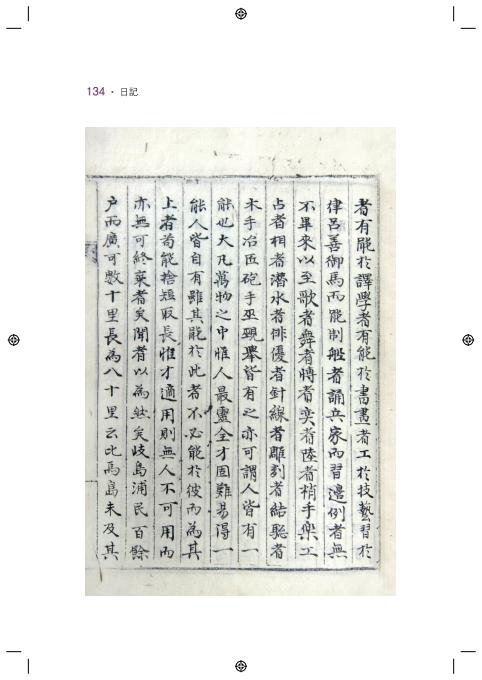 134 • 日記
者有能於譯學者有能於書畫者工於技藝習於
律呂善御馬而能制船者誦兵家而習邊例者無
不畢來以至歌者舞者博者奕者陸者梢手樂工
占者相者潛水者俳優者針線者雕刻者結聡者
木手冶匠砲手巫覡擧皆有之亦可謂人皆有一
能也大凡萬物之中惟人最靈全才固難易得一
能人皆自有雖其能於此者不必能於彼而爲其
上者苟能捨短取長惟才適用則無人不可用而
亦無可終棄者矣聞者以爲然矣岐島浦民百餘
户而廣可數十里長爲八十里云比馬島未及其